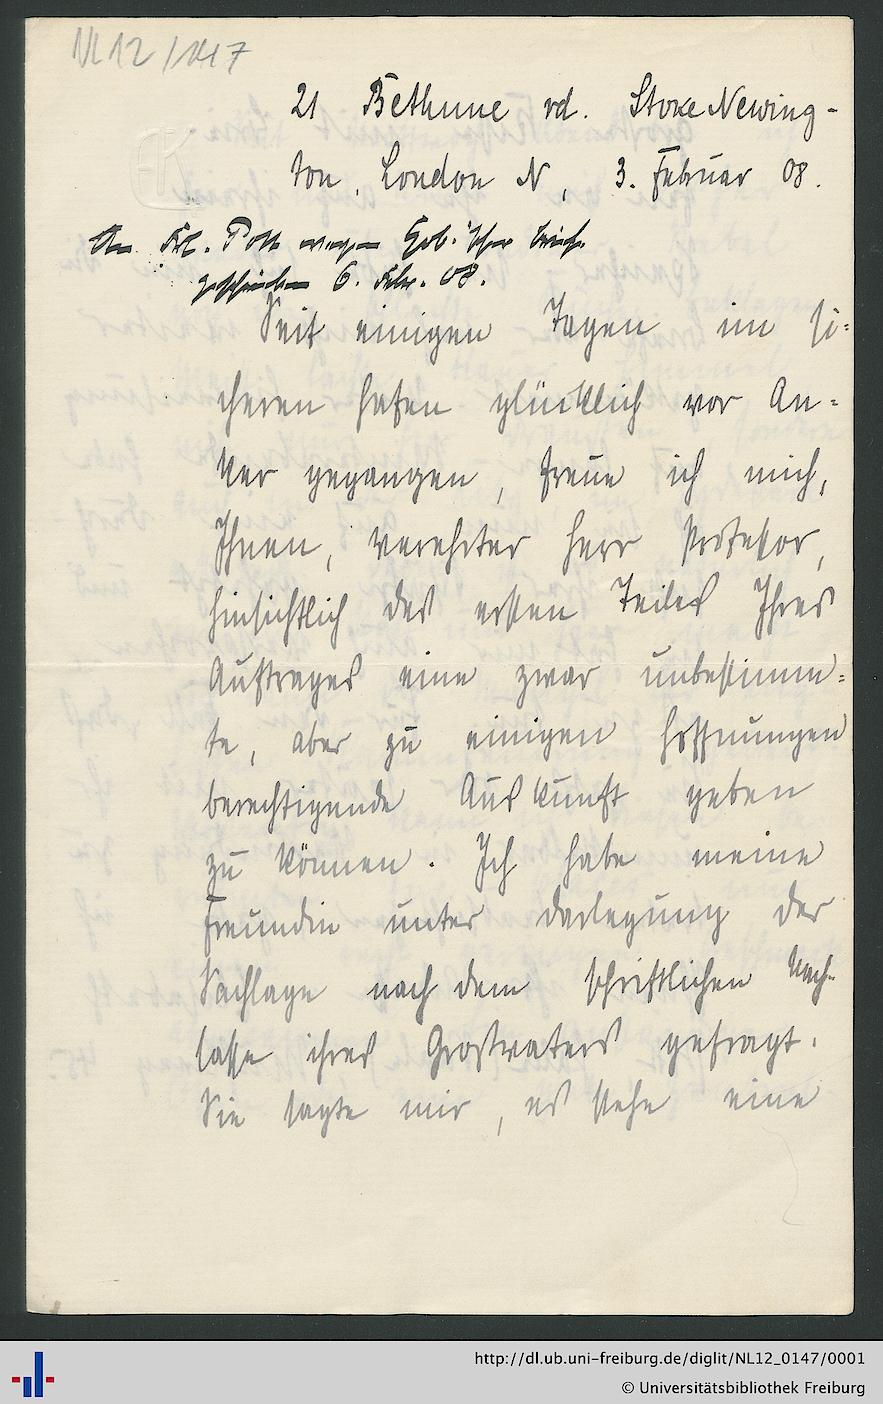 NL12/147
21 Bethune rd. Stoke Newing-
ton, London N, 3. Februar 08.
An Frl. Pott wegen Gob.'scher Briefe
geschrieben 6. Febr. 08.
Seit einigen Tagen im si-
cheren Hafen glücklich vor An-
ker gegangen, freue ich mich,
Ihnen, verehrter Herr Professor,
hinsichtlich des ersten Teiles Ihres
Auftrages eine zwar unbestimm-
te, aber zu einigen Hoffnungen
berechtigende Auskunft geben
zu können. Ich habe meine
Freundin unter Darlegung der
Sachlage nach dem schriftlichen Nach-
lasse ihres Grossvaters gefragt.
Sie sagte mir, es stehe eine
http://dl.ub.uni-freiburg.de/diglit/NL12_0147/0001
© Universitätsbibliothek Freiburg